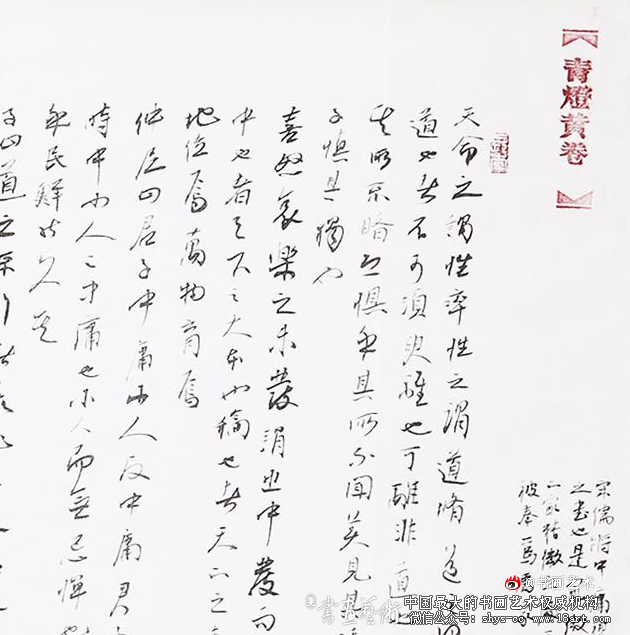 青燈黃卷
宋儒將中庸
之書也是
二家精微
被奉爲
天命之謂性率性之謂道脩道
道也者不可須臾離也可離非道
其所不睹恐懼乎其所不聞莫見
子慎其獨也
喜怒哀樂之未發謂之中發而
中也者天下之大本也和也者天下之
地位焉萬物育焉
仲尼曰君子中庸小人反中庸君
時中小人之中庸也小人而無忌憚
民鮮能久矣
子曰道之不行
@书画艺术
書畫藝術
中国最大的书画艺术权威机构
微信公众号: shys-ooo www.18art.cn